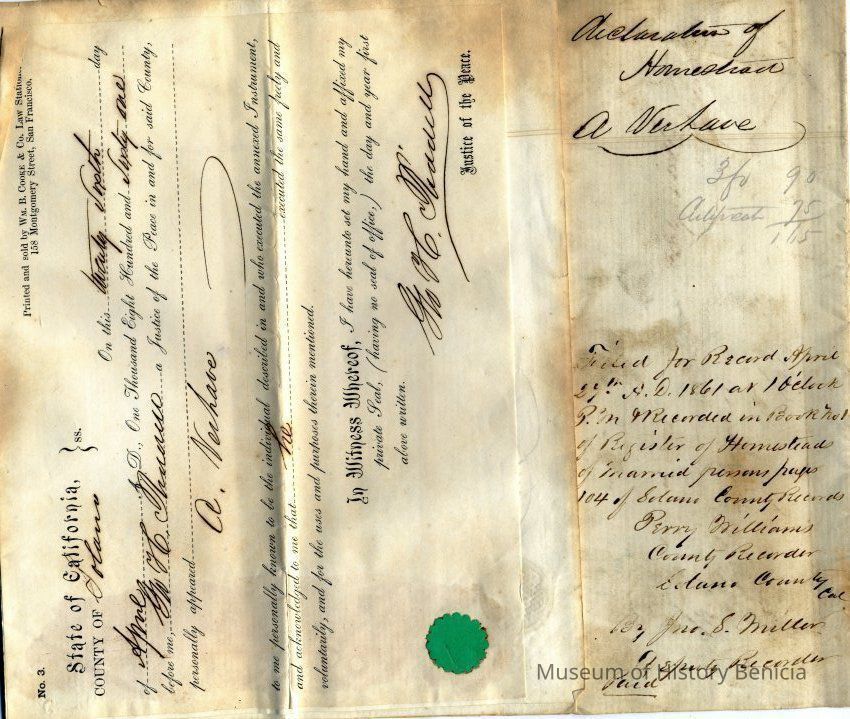 No. 3.
Printed and sold by WM. B. COOKE & Co., Law Stationers,
158 Montgomery Street, San Francisco.
State of California, } ss.
COUNTY OF Solano
On this twenty day
of April A. D., One Thousand Eight Hundred and Sixty one
before me, Wm H. a Justice of the Peace in and for said County,
personally appeared
A. Verhave
to me personally known to be the individual described in and who executed the annexed Instrument,
and acknowledged to me that he executed the same freely and
voluntarily, and for the uses and purposes therein mentioned.
In Witness Whereof, I have hereunto set my hand and affixed my
private Seal, (having no seal of office,) the day and year first
above written.
Wm H.
Justice of the Peace.
Declaration of
Homestead
A Verhave
3fo 90
75
165
Filed for Record April
27th A.D. 1861 at 1 O'clock
P.M & Recorded in Book No 1
of Register of Homesteads
of Married persons page
104 of Solano County Records
Perry Williams
County Recorder
Solano County
Cal
By Jno. S. Miller
Deputy Recorder
Paid
Museum of History Benicia